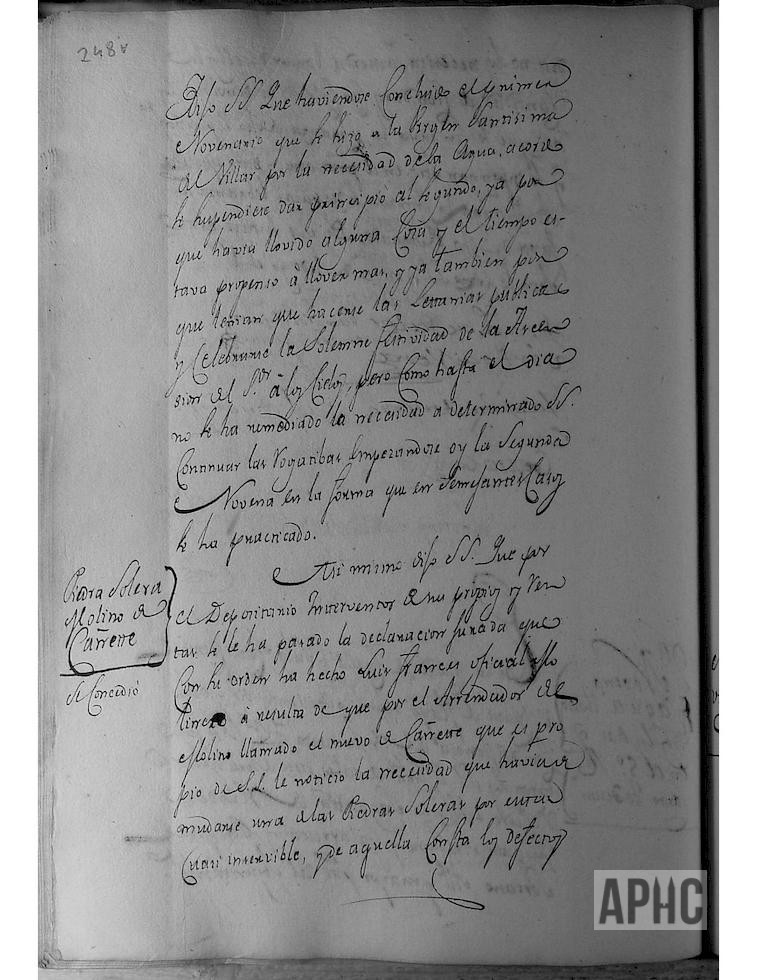 248v
Dijo SS. Que haviendose Concluido el primer
Novenario que se hizo a la Virgen Santisima
del Villar por la necesidad de la Agua, acordo
se suspendiese dar principio al segundo, ya por
que havia llovido alguna Cosa y el tiempo es-
tava propenso à llover mas, y ya tambien por
que tenian que hacerse las Lettanias publicas
y Celebrarse la Solemne festividad de la Ascen
sion del S.or à los Cielos, pero Como hasta el dia
no se ha remediado la necesidad a determinado SS.
Continuar las Rogatibas Empezandose oy la Segunda
Novena en la forma que en Semejantes Casos
se ha practicado.
Asi mismo dijo SS. Que por
el Depositario Interventor de sus propios y Ren
tas se le ha pasado la declaracion Jurada que
Con su orden ha hecho Luis frances oficial
à resulta de que por el Arrendador del
Molino llamado el nuevo de Cañrete que es pro
pio de S.S. le noticio la necesidad que havia de
mudarse una de las Piedras Soleras por estar
Cuasi inservible, y de aquella Consta los defectos
Piedra Solera
Molino de
Cañrete
Se Concedió
APHC